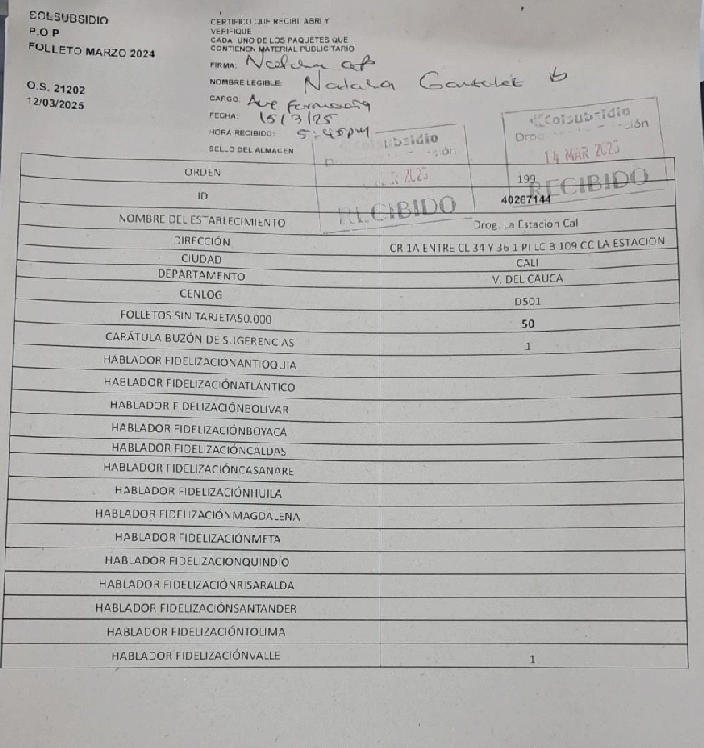 COLSUBSIDIO
P.O.P
FOLLETO MARZO 2024
O.S. 21202
12/03/2025
CERTIFICO QUE RECIBI ABRI Y
VERIFIQUE
CADA UNO DE LOS PAQUETES QUE
CONTIENEN MATERIAL PUBLICITARIO
FIRMA:
NOMBRE LEGIBLE: Natalia Gonzalez
CARGO:
FECHA: 15/3/25
HORA RECIBIDO: 5:45pm
SELLO DEL ALMACEN
Colsubsidio
RECIBIDO
Colsubsidio
14 MAR 2025
RECIBIDO
ORDEN 199
ID 40267144
NOMBRE DEL ESTABLECIMIENTO Drog. La Estacion Cal
DIRECCIÓN CR 1A ENTRE CL 34 Y 36 1 PI LC B 109 CC LA ESTACION
CIUDAD CALI
DEPARTAMENTO V. DEL CAUCA
CENLOG DS01
FOLLETOS SIN TARJETA50.000 50
CARÁTULA BUZÓN DE SUGERENCIAS 1
HABLADOR FIDELIZACIÓNANTIOQUIA
HABLADOR FIDELIZACIÓNATLÁNTICO
HABLADOR FIDELIZACIÓNBOLIVAR
HABLADOR FIDELIZACIÓNBOYACA
HABLADOR FIDELIZACIÓNCALDAS
HABLADOR FIDELIZACIÓNCASANARE
HABLADOR FIDELIZACIÓNHUILA
HABLADOR FIDELIZACIÓNMAGDALENA
HABLADOR FIDELIZACIÓNMETA
HABLADOR FIDELIZACIONQUINDÍO
HABLADOR FIDELIZACIÓNRISARALDA
HABLADOR FIDELIZACIÓNSANTANDER
HABLADOR FIDELIZACIÓNTOLIMA
HABLADOR FIDELIZACIÓNVALLE 1